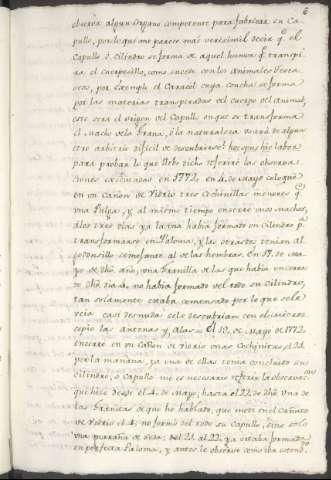 6
algun organo competente para fabricar su Ca-
pullo, por lo que me parece mas verisimil decir q.e el
Capullo ò Cilindro se forma de aquel humor q.e transpi-
ra el cuerpecillo, como sucede con los animales testa-
ceos, por Exemplo el Caracol cuya concha se forma
por las materias transpiradas del cuerpo del animal,
este sera el origen del Capullo en que se transforma
el Macho de la Grana, ò la naturaleza usará de algun
otro arbitrio dificil de descubrirse?
para probar lo que llebo dicho referiré las observa-
ciones executadas en 1772. en 4. de Mayo coloqué
en un Cañon de Vidrio tres Cochinillas menores q.e
una Pulga, y al mismo tiempo encerre unos machos,
a los tres dias ya la una habia formado un Cilindro p.a
transformarse en Paloma, y las otras dos tenian al
semejante al de las hembras. En 17. de Ma-
yo de dho año, una Granilla de las que habia encerra-
do dho dia 4. no habia formado del todo su Cilindro,
tan solamente estaba comensado por lo que se le
veia casi desnuda se le descubrian con el micros-
copio las antenas y Alas = El 19. de Mayo de 1772.
encerre en un Cañon de Vidrio unas Cochinitas el 21.
por la mañana, ya una de ellas tenia concluido su
Cilindro, ò Capullo me es necesario referir la observac.on
que hice desde el 4. de Mayo, hasta el 22. de dho. Una de
las Granitas de que he hablado, que meti en el Cañuto
de Vidrio el 4. no formó del todo su Capullo, sino solo
una maraña de seda; del 21. al 22. ya estaba formada
en perfecta Paloma, y antes le observé como iba